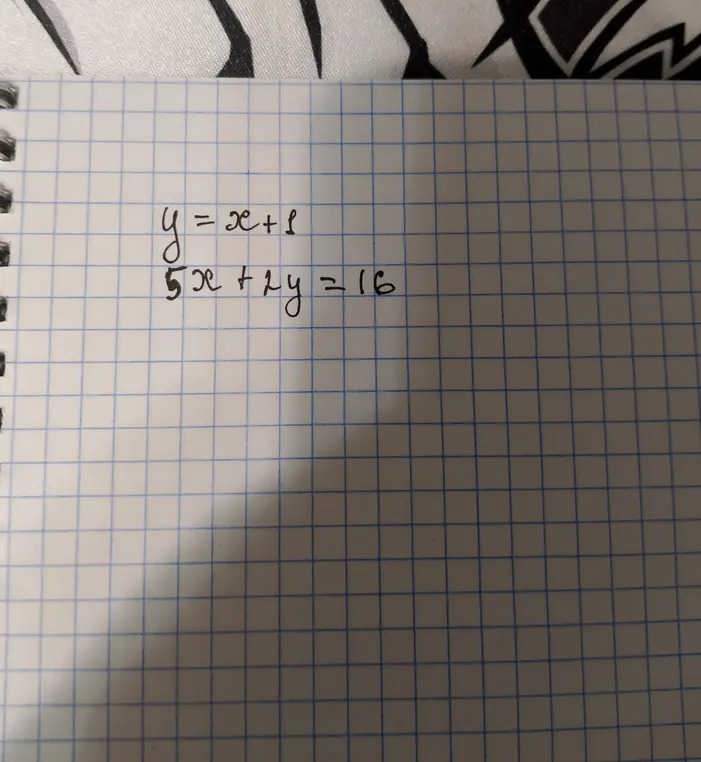 y = x + 1
5x + 2y = 16